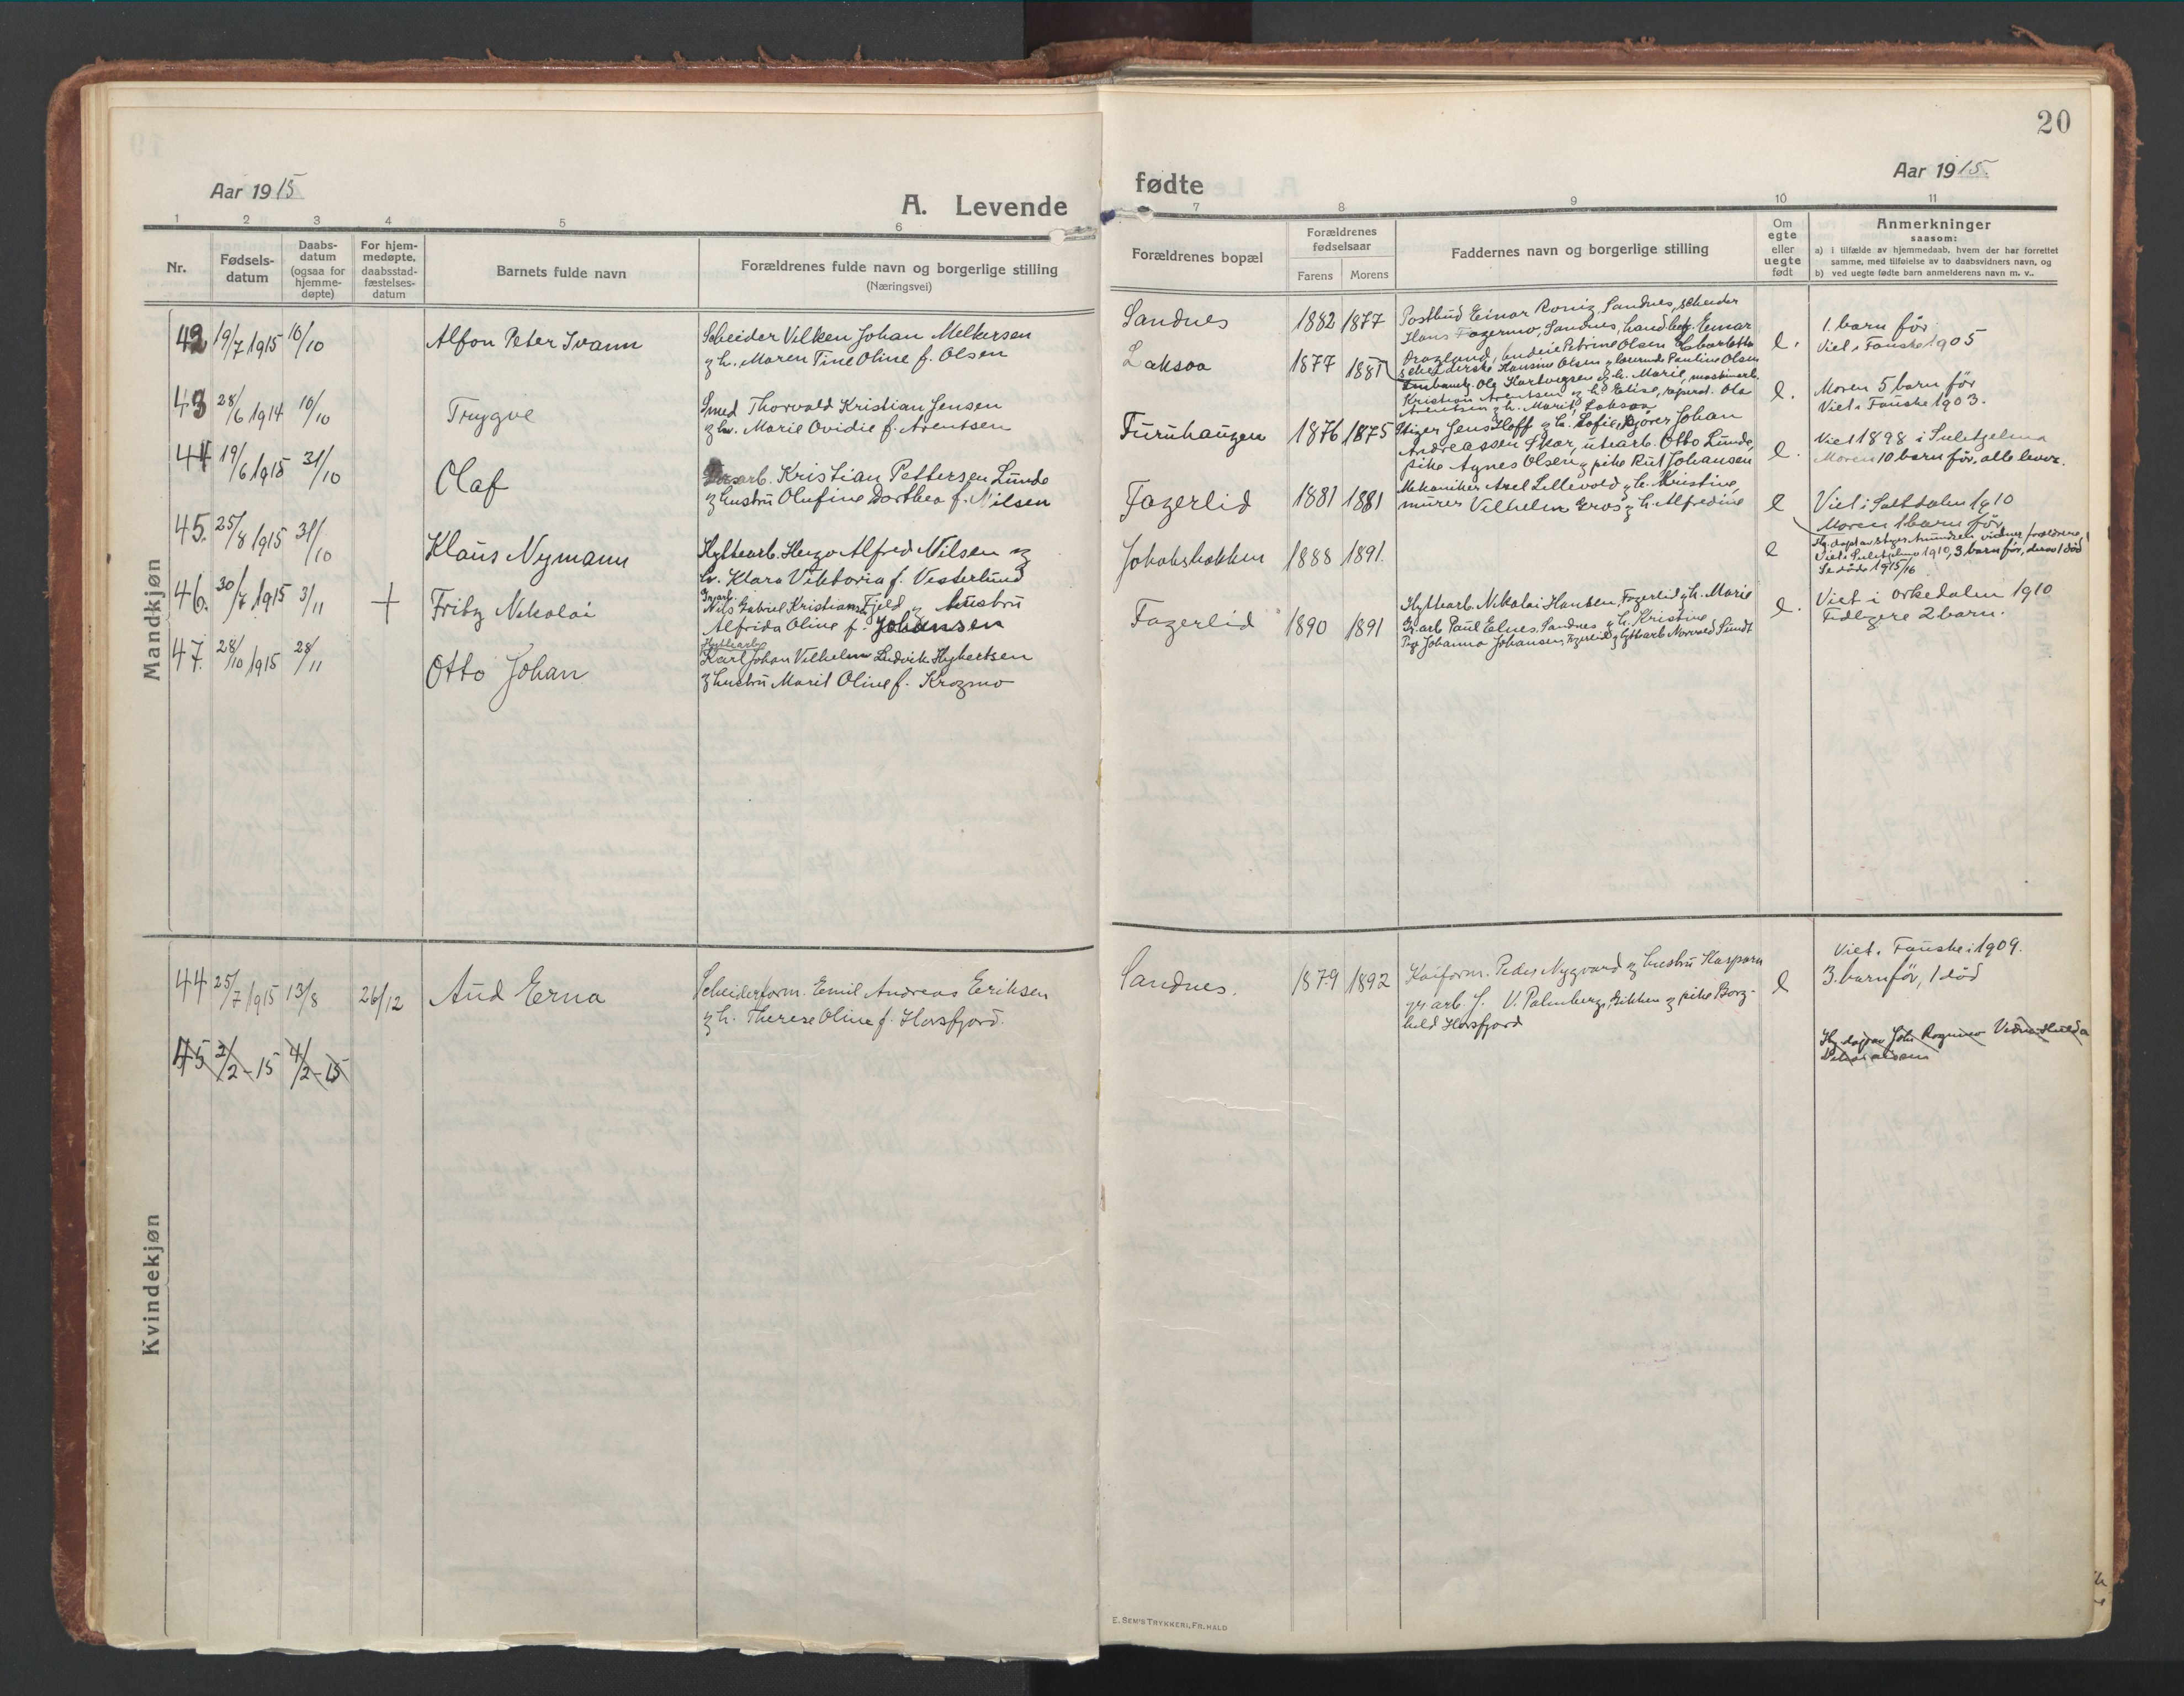 20
Aar 1915
A. Levende
1 2 3 4 5 6
Nr.
Fødsels-
datum
Daabs-
datum
(ogsaa for
hjemme-
døpte)
For hjem-
medøpte,
daabsstad-
fæstelses-
datum
Barnets fulde navn
Forældrenes fulde navn og borgerlige stilling
(Næringsvei)
Mandkjøn
42 19/7 1915 10/10 Alfon Peter Ivann
Scheider Vilken Johan Melkersen
og h. Maren Tine Oline f. Olsen
43 28/6 1914 10/10 Trygve
Smed Thorvald Kristian Jensen
og h. Marie Ovidie f. Arentsen
44 19/6 1915 31/10 Olaf
Kristian Pettersen Lunde
og hustru Olufine Dorthea f. Nilsen
45. 25/8 1915 31/10 Klaus Nymann
Hyttearb. Hugo Alfred Nilsen og
h. Klara Viktoria f. Vesterlund
46. 30/7 1915 3/11 + Fritz Nikolai
Gr.arb.
Nils Gabriel Kristian Fjeld og hustru
Alfrida Oline f. Johansen
47. 28/10 1915 28/11 Otto Johan
Hyttearb.
Karl Johan Vilhelm Ludvik Hybertsen
og hustru Marit Oline f. Krogmo
Kvindekjøn
44 25/7 1915 13/8 26/12 Aud Erna
Scheiderform. Emil Andreas Eriksen
og h. Therese Oline f. Horsfjord.
45 2/2-15 4/2-15
fødte
Aar 1915.
7 8 9 10 11
Forældrenes bopæl
Forældrenes
fødselsaar
Farens Morens
Faddernes navn og borgerlige stilling
Om
egte
eller
uegte
født
Anmerkninger
saasom:
a) i tilfælde av hjemmedaab, hvem der har forrettet
samme, med tilføielse av to daabsvidners navn, og
b) ved uegte fødte barn anmelderens navn m. v..
Sandnes 1882 1877
Postbud Einar Ronig, Sandnes, scheider
Hans Fagermo, Sandnes, handbetj. Einar
e.
1. barn før
Viet i Fauske 1905
Laksaa 1877 1881
Olsen og lærerinde Pauline Olsen
Ole Hartvigsen og h. Marie, maskinarb.
Kristian Arentsen og h. Elise, reperat. Ole
Arentsen og h. Marit, Laksaa
e.
Moren 5 barn før
Viet i Fauske 1903.
Furuhaugen 1876 1875
Stiger Jens Hoff og h. Sofie, kjører Johan
Andreassen Skar, utearb. Otto Lunde,
pike Agnes Olsen og pike Rut Johansen
e.
Viet 1898 i Sulitjelma
Moren 10 barn før, alle lever.
Fagerlid 1881 1881
Mekaniker Axel Lillevold og h. Kristine,
murer Vilhelm Gros og h. Alfredine
e
Viet i Saltdalen 1910
Moren 1 barn før
Jakobsbakken 1888 1891.
e
Viet i Sulitjelma 1910, 3 barn før, derav 1 død
Se døde 1915/16
Fagerlid 1890 1891
Hyttearb. Nikolai Hansen, Fagerlid og h. Marie
Gr.arb Paul Elnes, Sandnes og h. Kristine
Pige Johanna Johansen, Fagerlid og hyttearb Norvald Sundt
e.
Viet i Orkedalen 1910
Tidligere 2 barn.
Sandnes. 1879 1892
Kaiform. Peder Nygaard og hustru Kaspara
gr arb. J. V. Palmberg, Gikken og pike Borg-
hild Horsfjord
e
Viet i Fauske i 1909.
3. barn før, 1 død
E. SEM'S TRYKKERI, FR.HALD